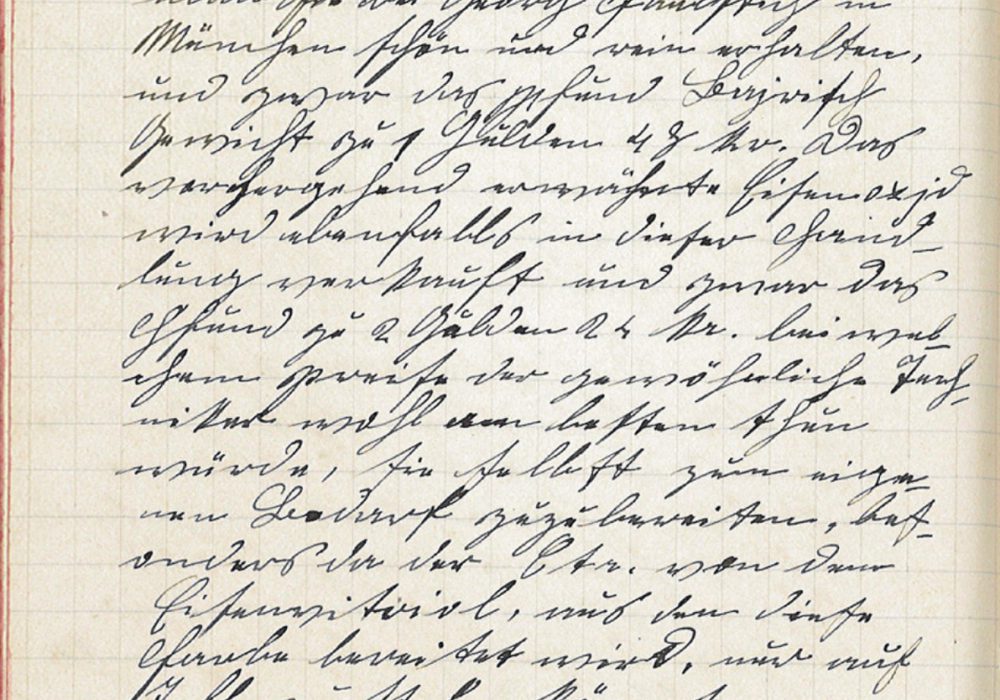 Georg in
München schön und rein erhalten,
und zwar das Pfund Bajrisch
Gewicht zu 1 Gulden 48 Kr. Das
vorhergehend erwähnte Eisenoxjd
wird ebenfalls in dieser Hand-
lung verkauft und zwar das
Pfund zu 2 Gulden 24 Kr. bei wel-
chem Preise der gewöhnliche Tech-
niker wohl am besten thun
würde, sie selbst zum eige-
nen Bedarf zuzubereiten, bes-
onders da der Ctr. von dem
Eisenvitriol, aus dem diese
Farbe bereitet wird, nur auf